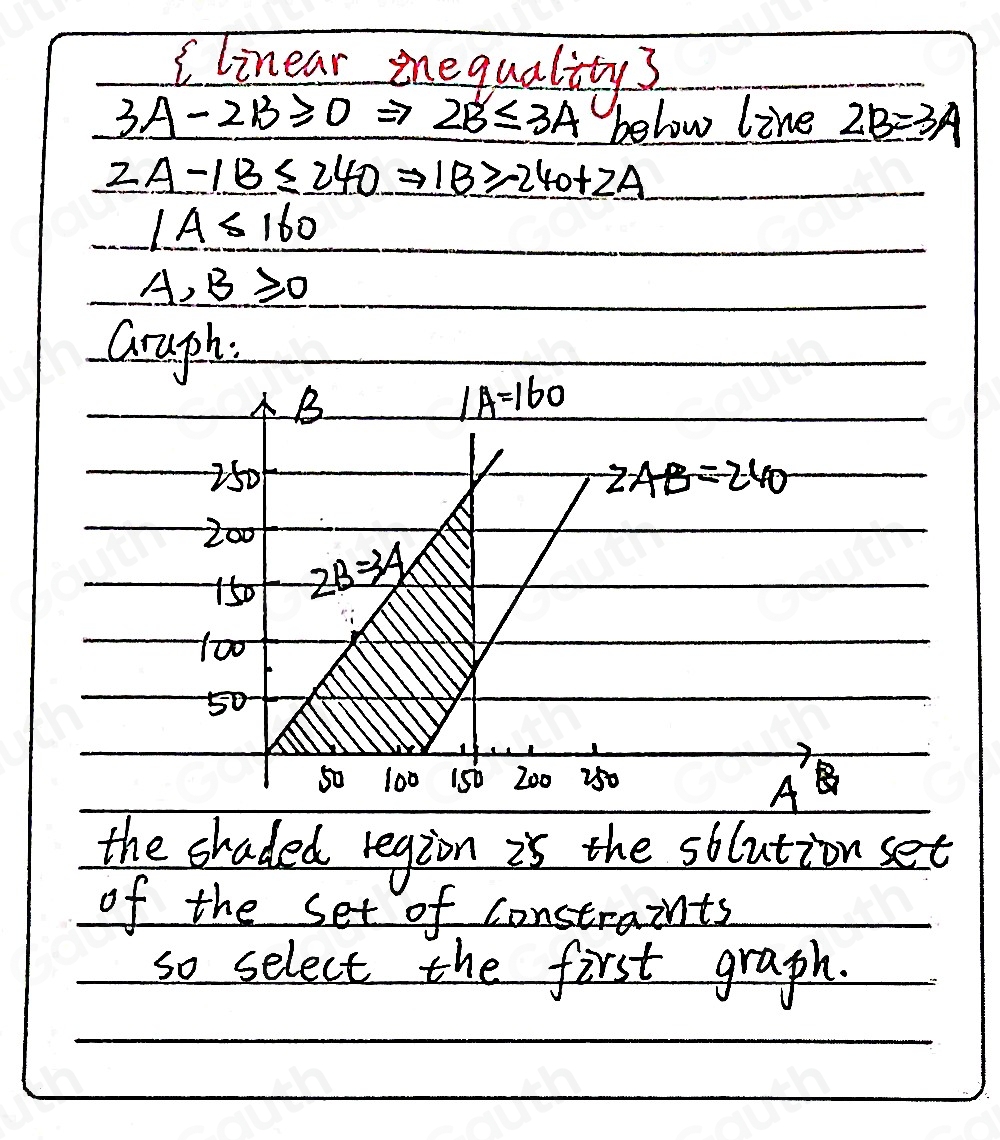 { linear inequality}
3A-2B≥0 ⇒ 2B≤3A below line 2B=3A
2A-1B≤240⇒1B≥-240+2A
1A≤160
A,B≥0
Graph:
B
1A=160
250
2AB=240
200
2B=3A
150
100
50
50 100 150 200 250
A B
the shaded region is the solution set
of the set of constraints
so select the first graph.